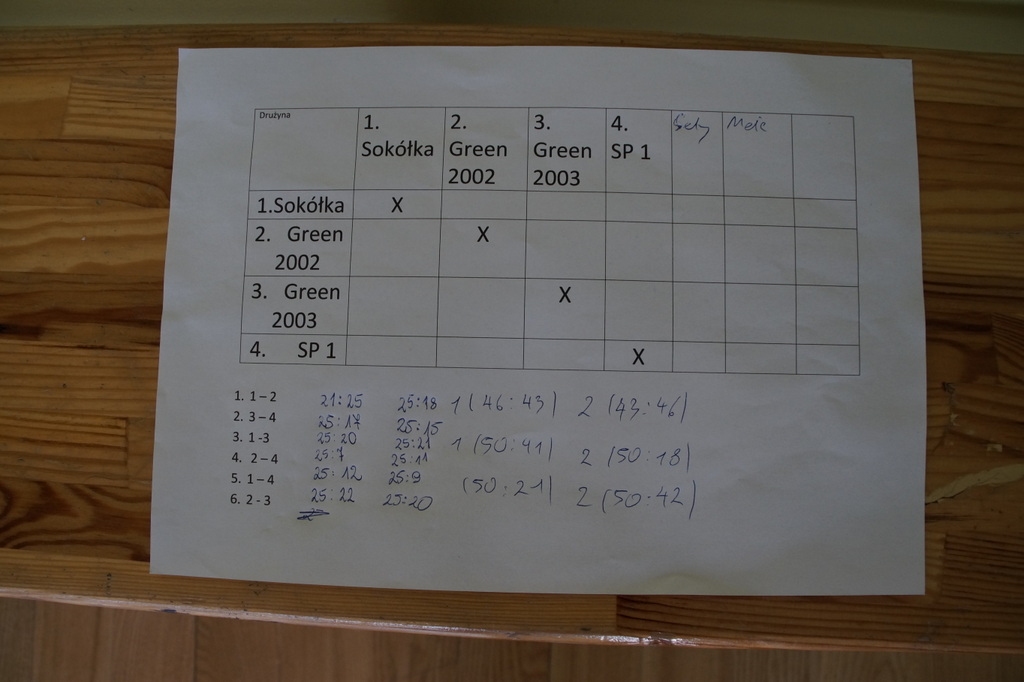 Drużyna 1. 2. 3. 4. Sety Małe
Sokółka Green Green SP 1
2002 2003
1.Sokółka X
2. Green X
2002
3. Green X
2003
4. SP 1 X
1. 1 – 2 21:25 25:18 1 (46:43) 2 (43:46)
2. 3 – 4 25:17 25:15
3. 1 -3 25:20 25:21 1 (50:41) 2 (50:18)
4. 2 – 4 25:7 25:11
5. 1 – 4 25:12 25:9 (50:21) 2 (50:42)
6. 2 - 3 25:22 25:20